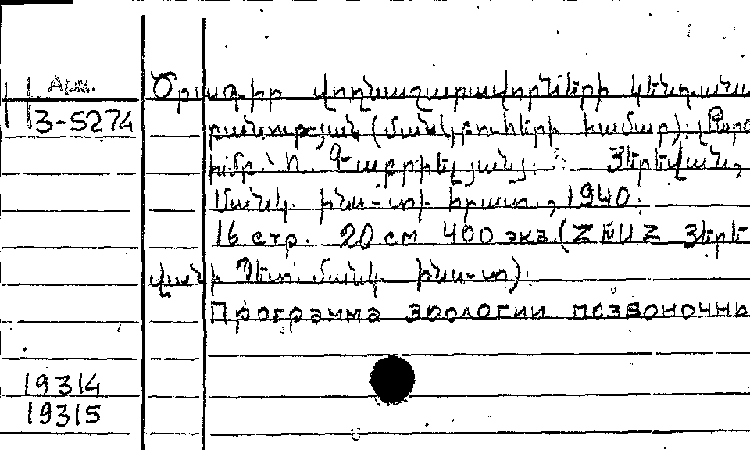 Арм.
Ծրագիր վողնաշարավորների կենդանա
3-5274
բանության (մանկբուհերի համար). (Պատ.
խմբ՝ Ո. Գաբրիելյանց. Յերեվան,
Մանկ. ինս-տի հրատ, 1940.
16 стр. 20 см 400 экз. (ՀԽՍՀ Յերե
վանի Պետ. մանկ. ինս-տ).
Программа зоологии позвоночны
19314
19315